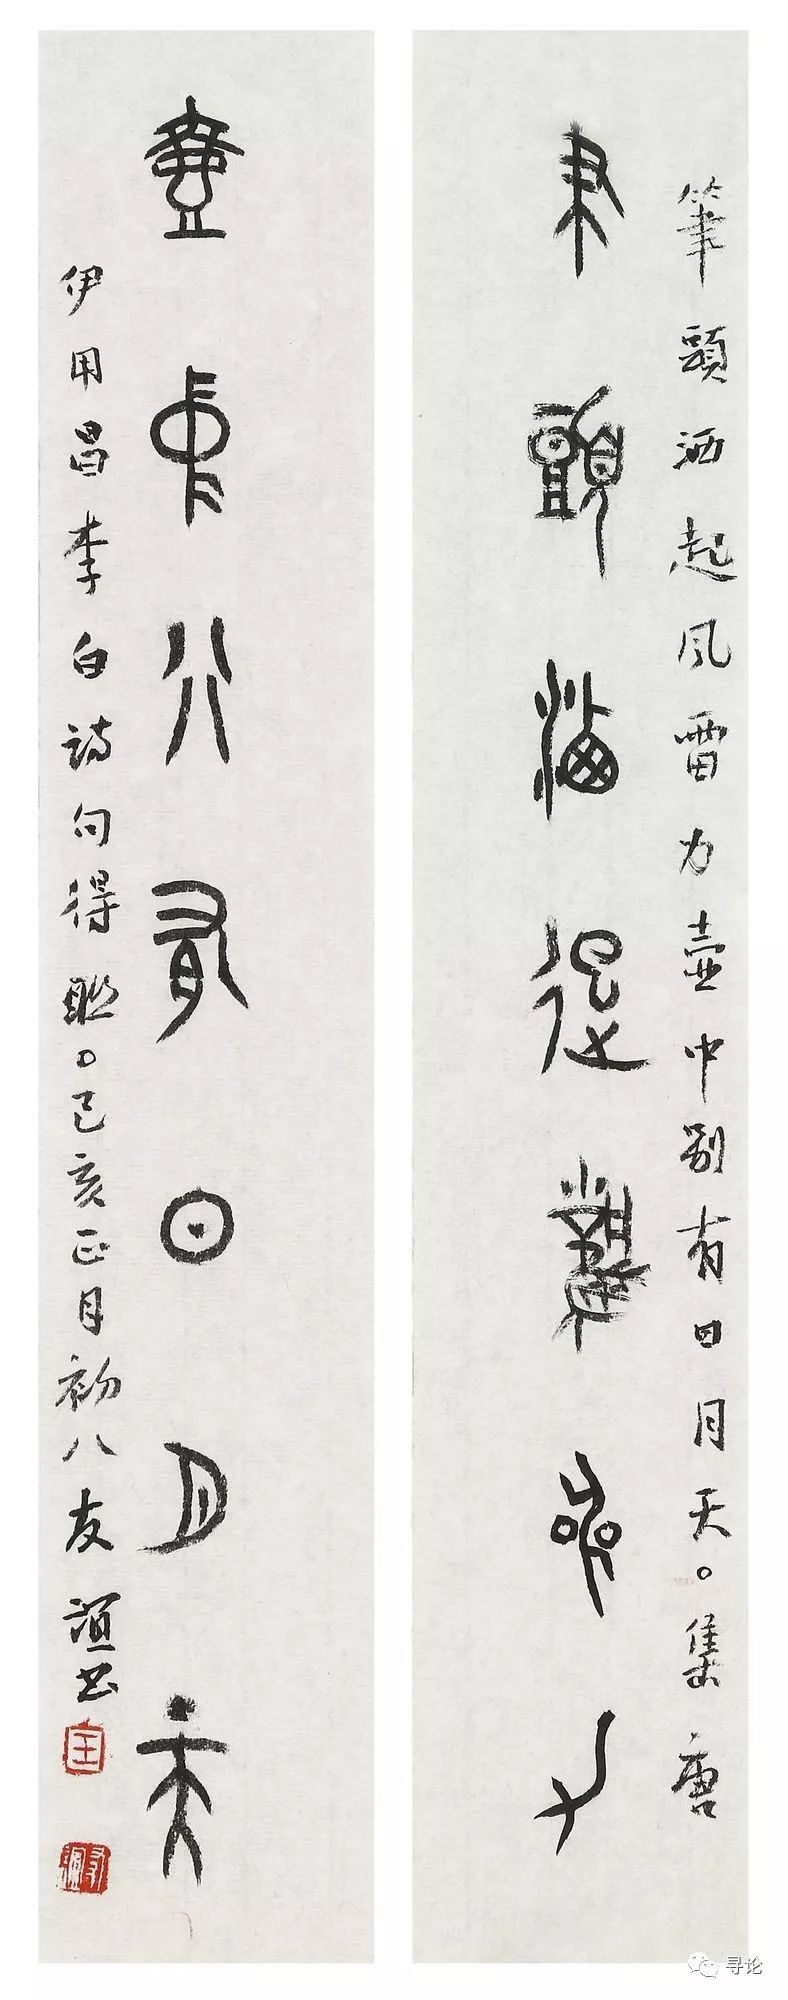 聿頭洒起風雷力
筆頭洒起风雷力壺中别有日月天。集唐
壺中別有日月天
伊用昌李白詩句得联。己亥正月初八友谊书
王
友谊
寻论